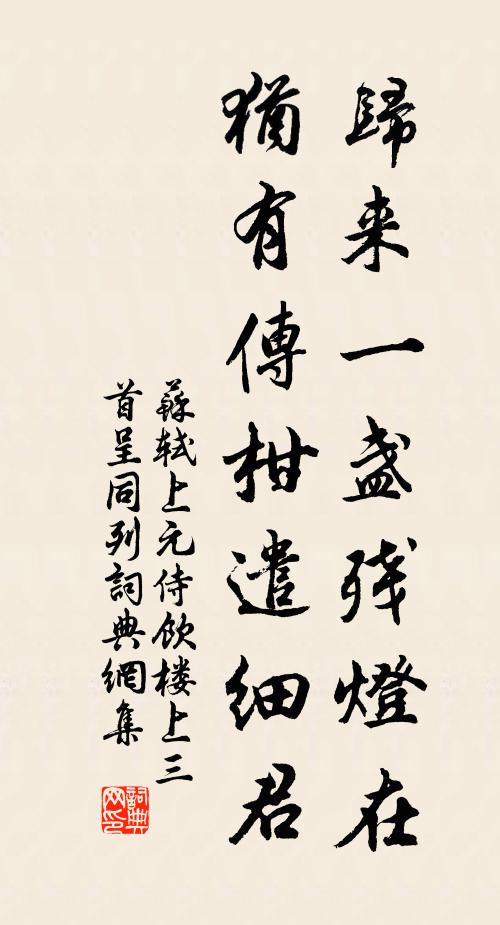 歸来一盞残燈在
猶有傳柑遣细君
蘇轼上元侍飲楼上三
首呈同列詞典網集
詞典
网印